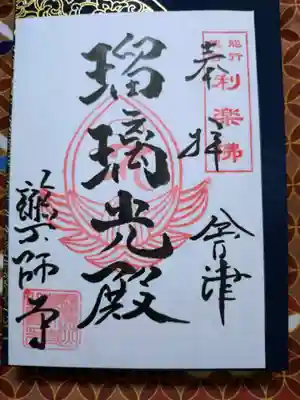 奉拝
利楽佛
會津
瑠璃光殿
藥師寺